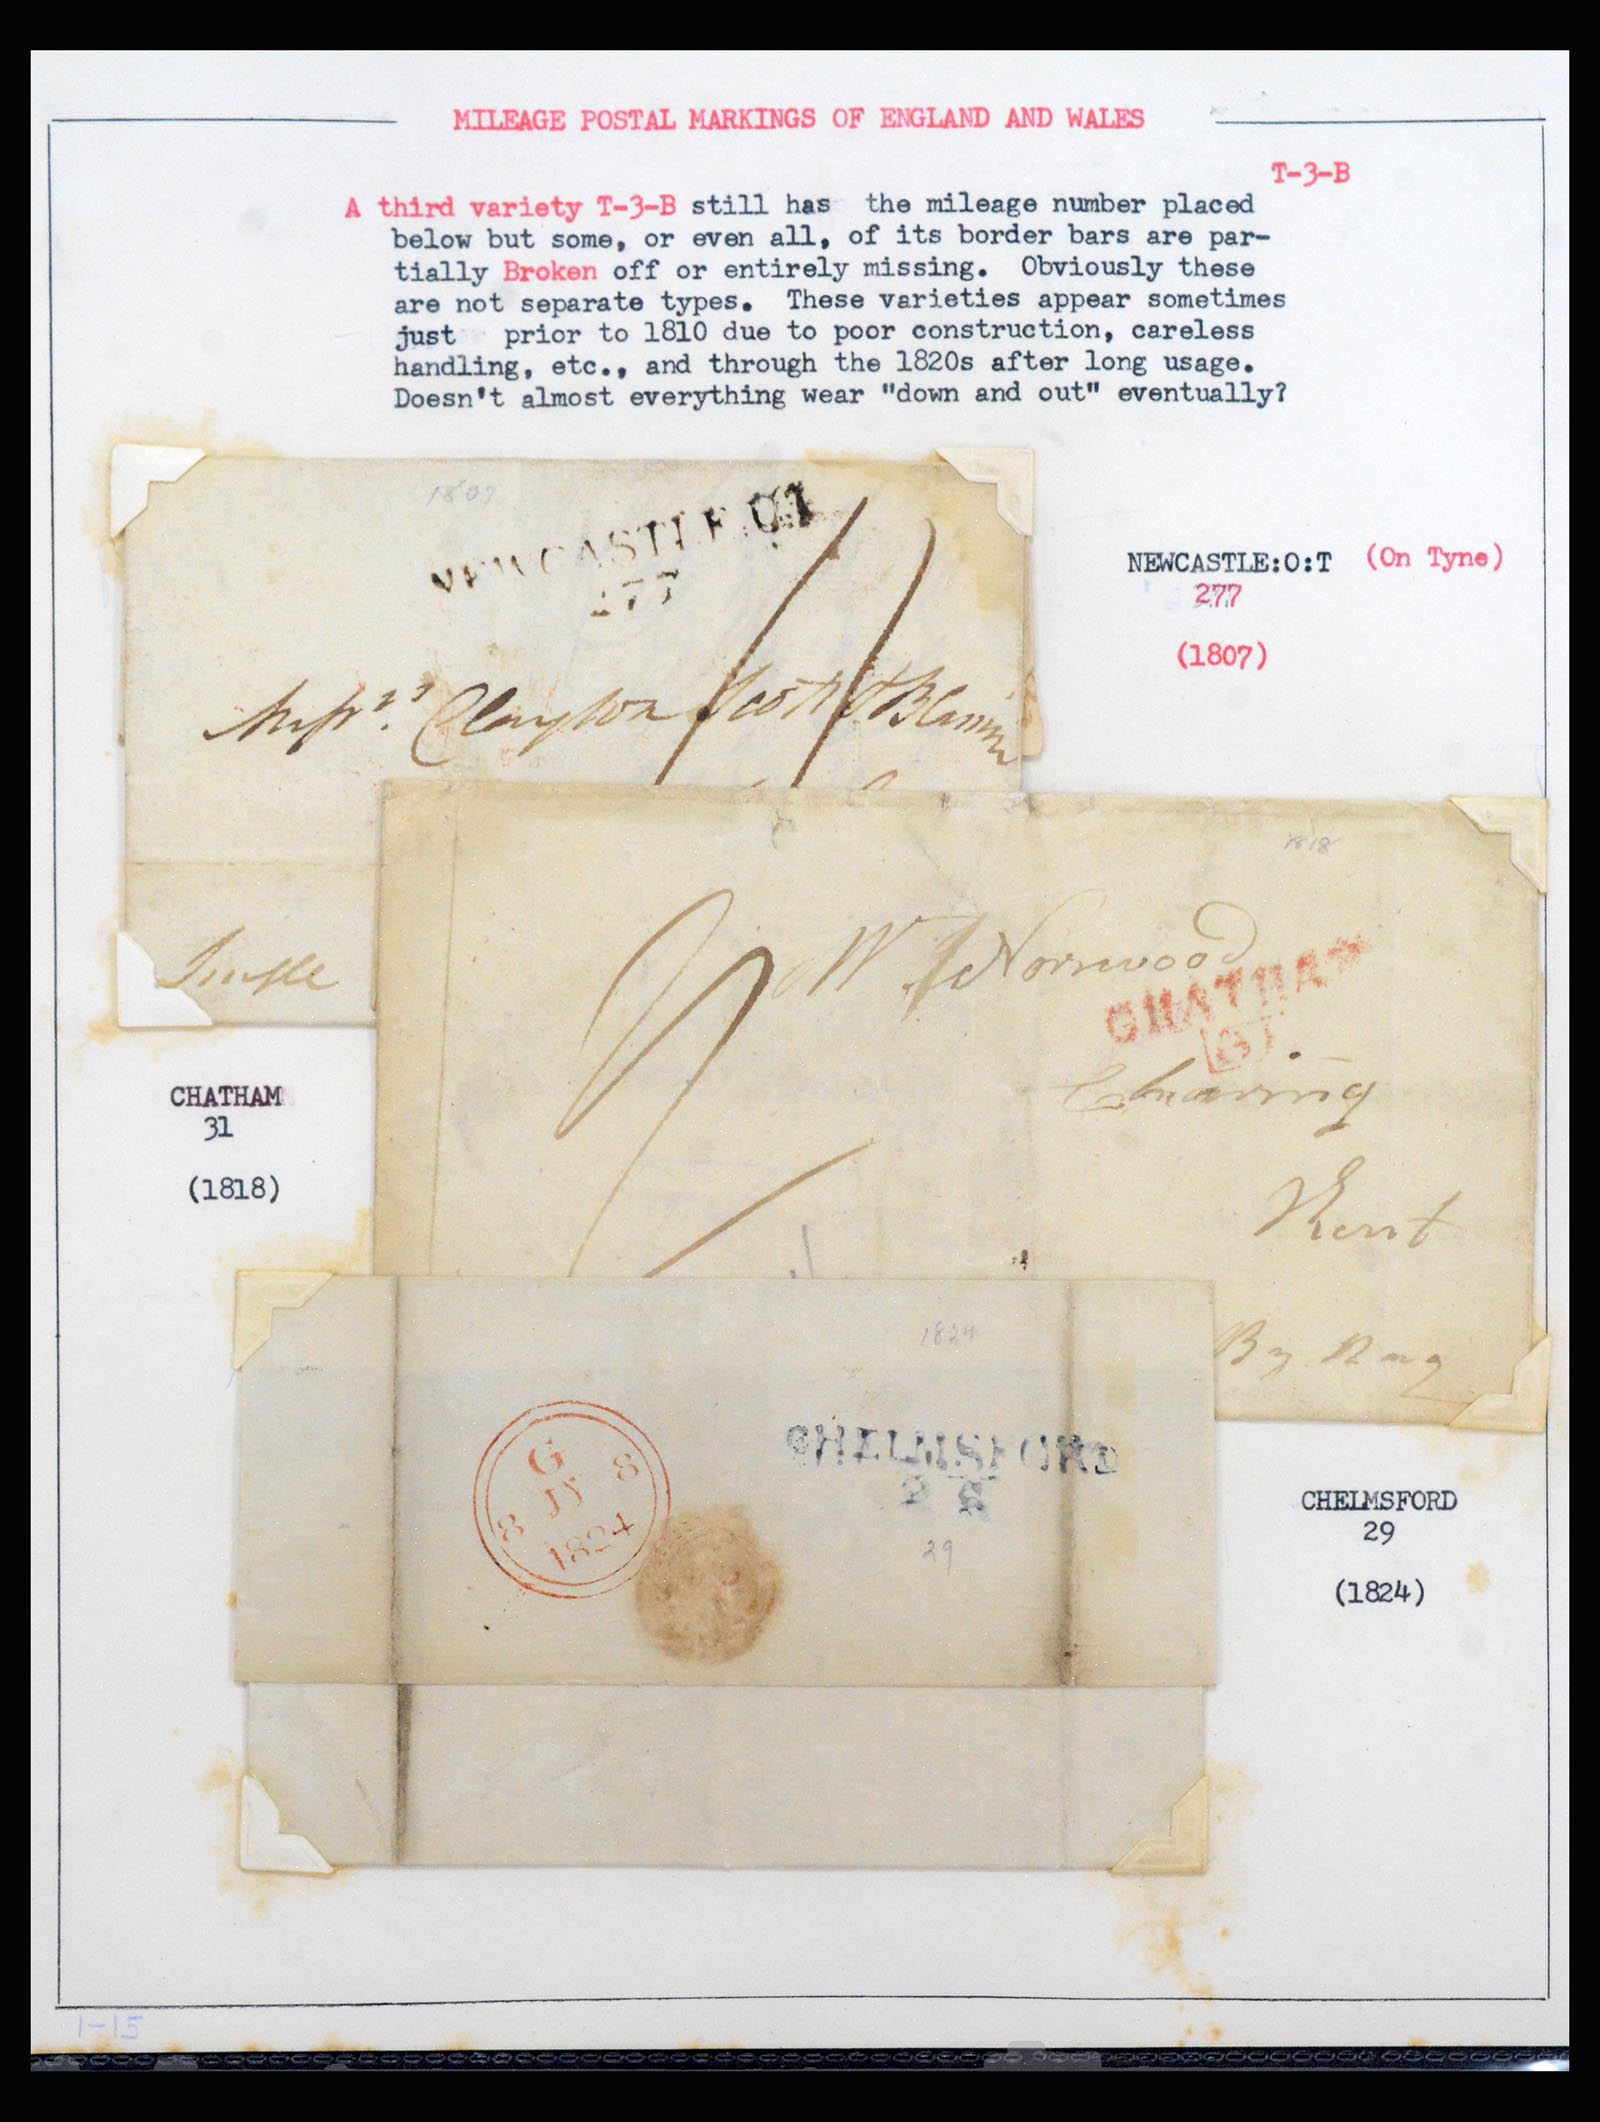 MILEAGE POSTAL MARKINGS OF ENGLAND AND WALES
T-3-B
A third variety T-3-B still has the mileage number placed
below but some, or even all, of its border bars are par-
tially Broken off or entirely missing. Obviously these
are not separate types. These varieties appear sometimes
just prior to 1810 due to poor construction, careless
handling, etc., and through the 1820s after long usage.
Doesn't almost everything wear "down and out" eventually?
1807
NEWCASTLE.O:T
277
NEWCASTLE:O:T (On Tyne)
277
(1807)
Messrs. Clayton Scott &
1818
W Norwood
CHATHAM
31
Charing
Kent
CHATHAM
31
(1818)
1824
By
G
8 JY 8
1824
CHELMSFORD
29
29
CHELMSFORD
29
(1824)
1-15